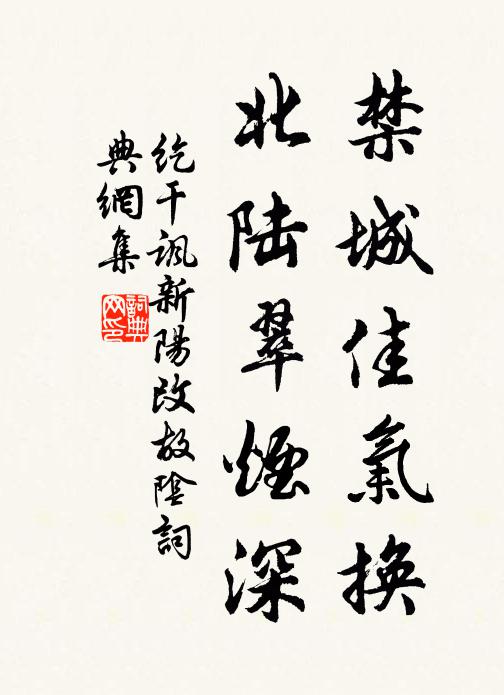 禁城佳氣換
北陸翠煙深
紇干諷新陽改故陰詞
典網集
詞典網印